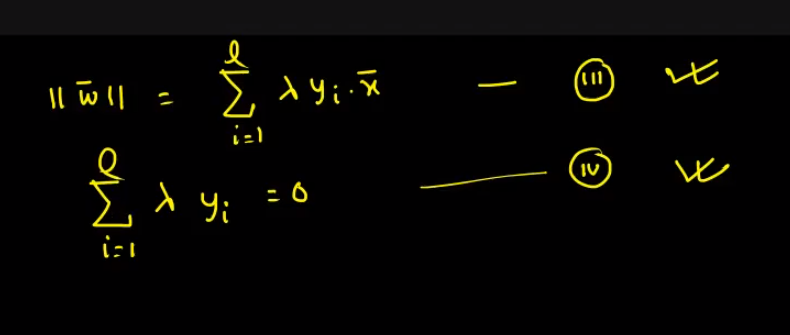 ||w̄|| = Σ_{i=1}^{l} λ y_i . x̄ — (III)
Σ_{i=1}^{l} λ y_i = 0 — (IV)